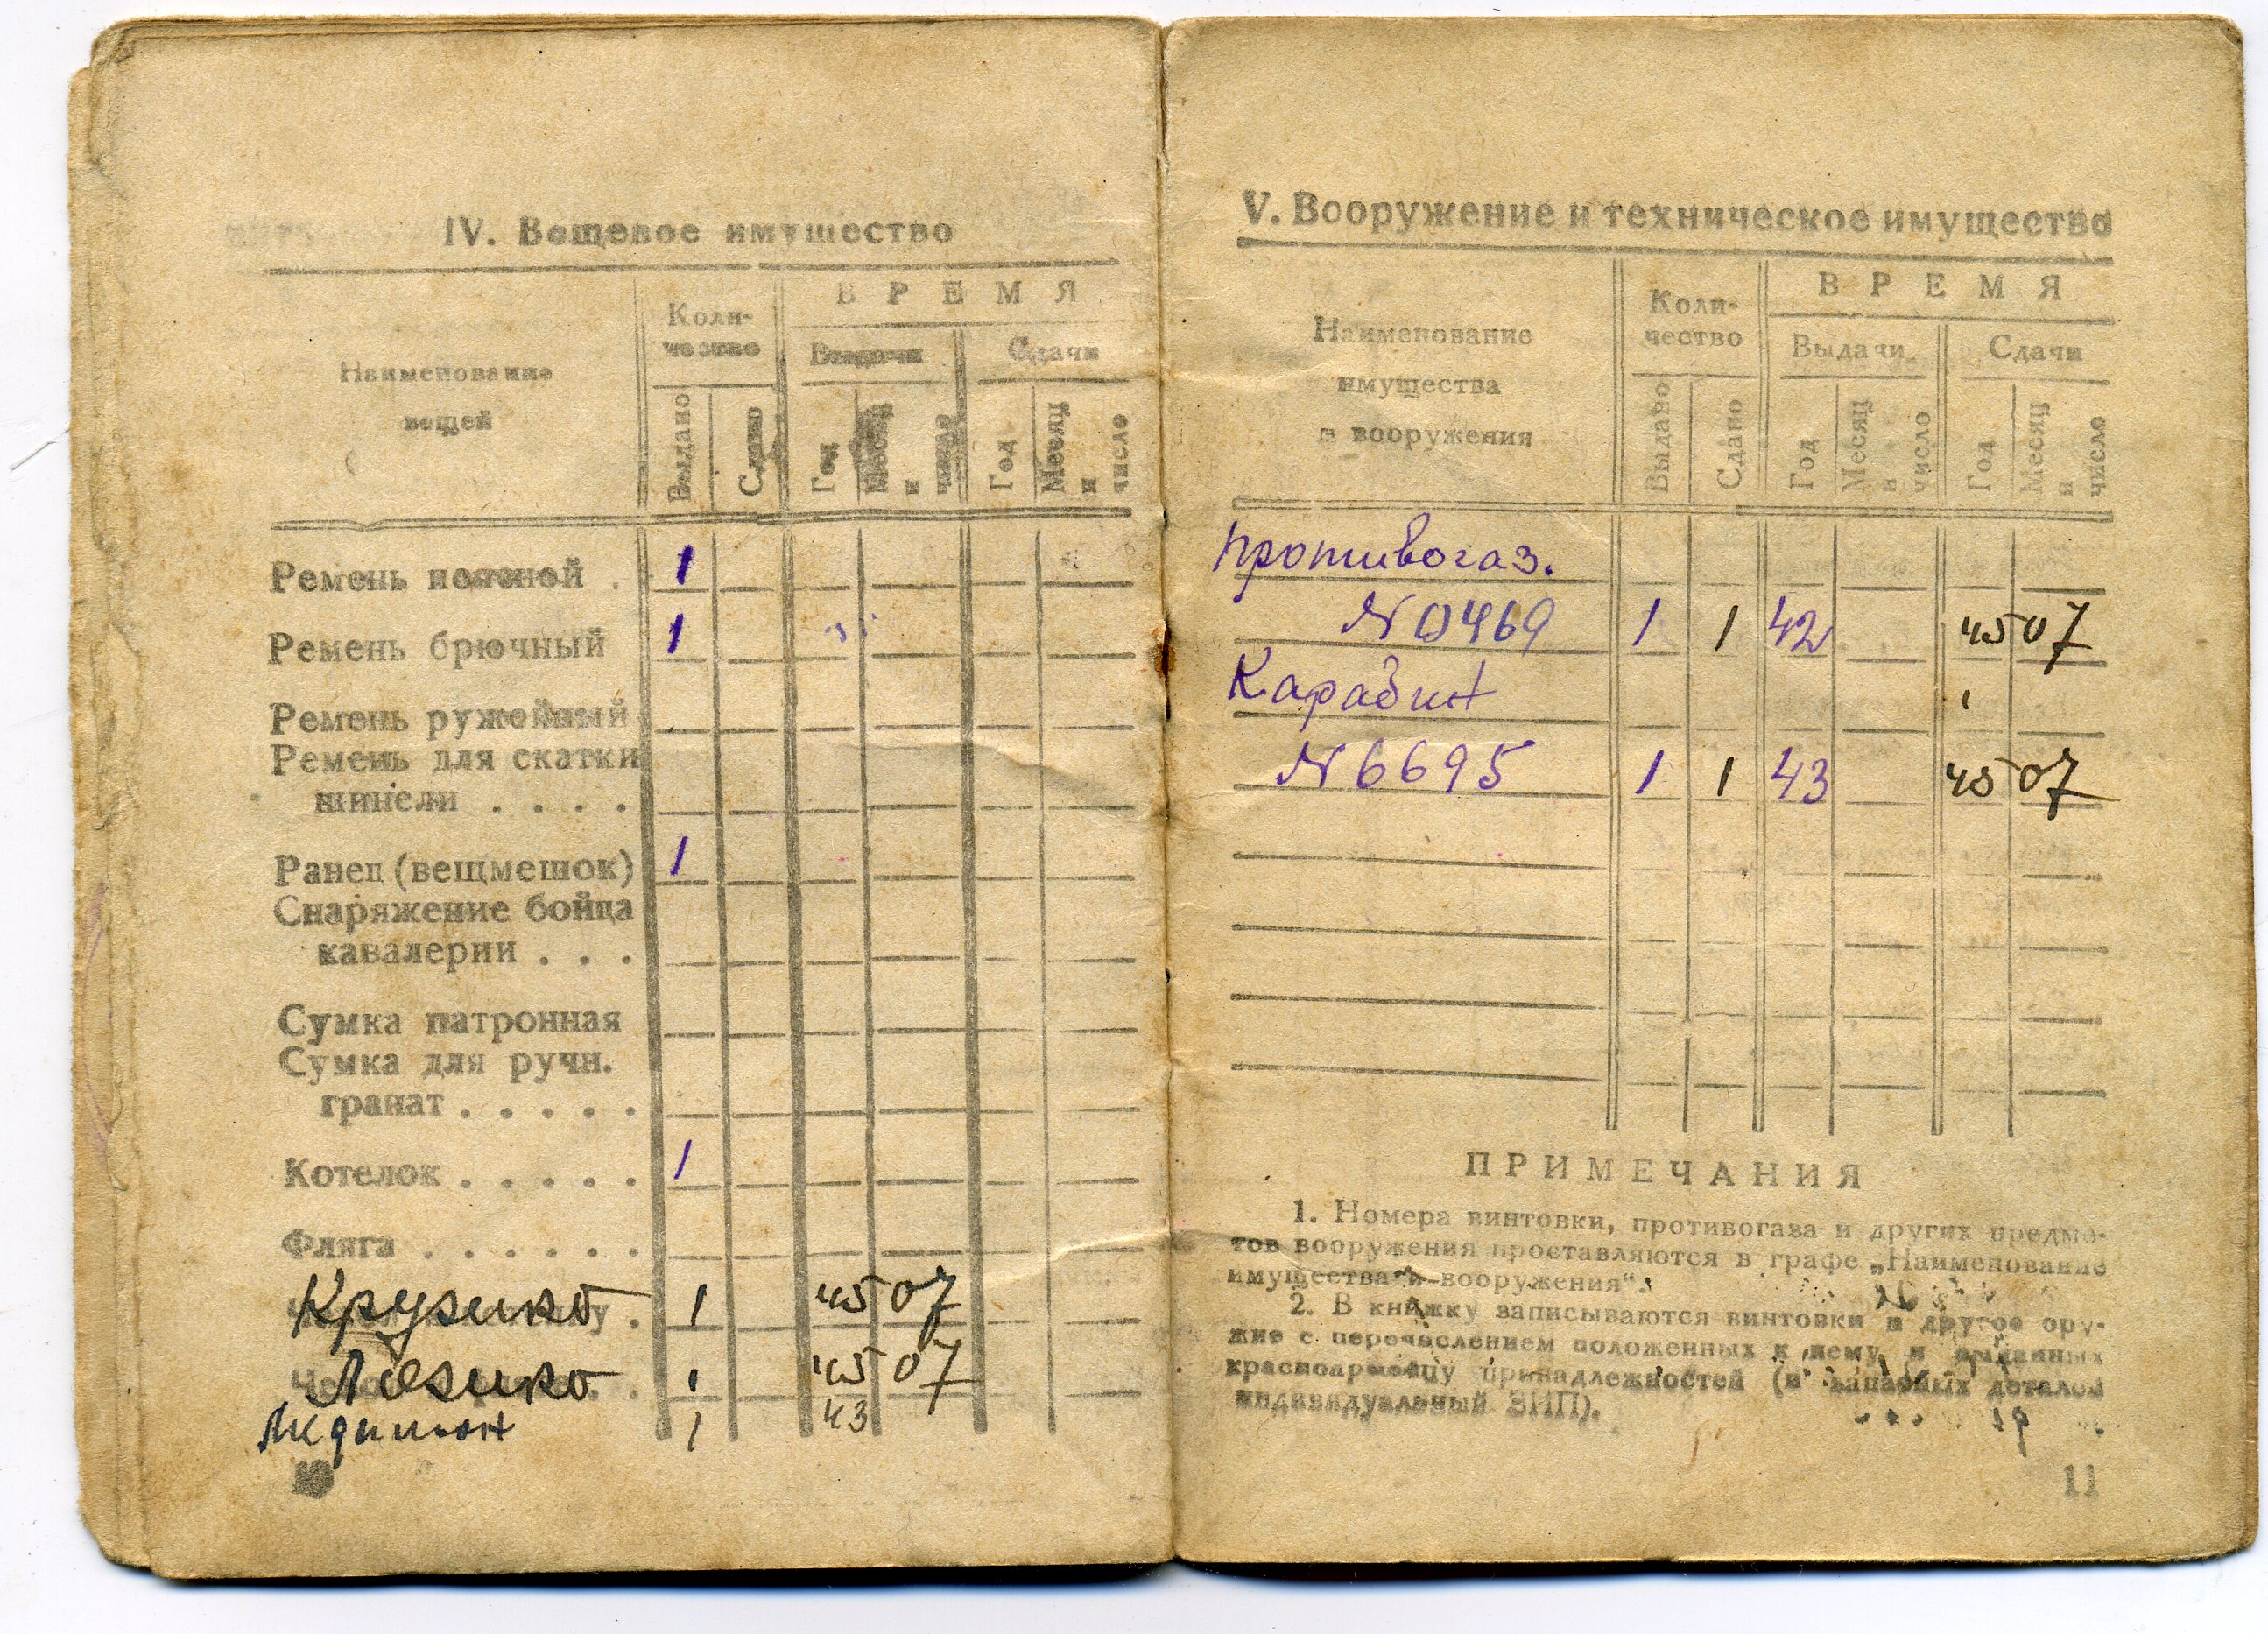 IV. Вещевое имущество
Наименование
вещей
Коли-
чество
ВРЕМЯ
Выдачи
Сдачи
Выдано
Сдано
Год
Месяц
и
число
Год
Месяц
и
число
Ремень поясной . 1
Ремень брючный 1
Ремень ружейный
Ремень для скатки
шинели . . . .
Ранец (вещмешок) 1
Снаряжение бойца
кавалерии . . .
Сумка патронная
Сумка для ручн.
гранат . . . . .
Котелок . . . . . 1
Фляга . . . . . .
1 45 07
1 45 07
1 43
10
V. Вооружение и техническое имущество
Наименование
имущества
и вооружения
Коли-
чество
ВРЕМЯ
Выдачи
Сдачи
Выдано
Сдано
Год
Месяц
и
число
Год
Месяц
и
число
противогаз.
N 0469 1 1 42 45 07
Карабин
N 6695 1 1 43 45 07
ПРИМЕЧАНИЯ
1. Номера винтовки, противогаза и других предме-
тов вооружения проставляются в графе „Наименование
имущества и вооружения“.
2. В книжку записываются винтовки и другое ору-
жие с перечислением положенных к нему и выданных
красноармейцу принадлежностей (и запасных деталей
индивидуальный ЗИП).
11